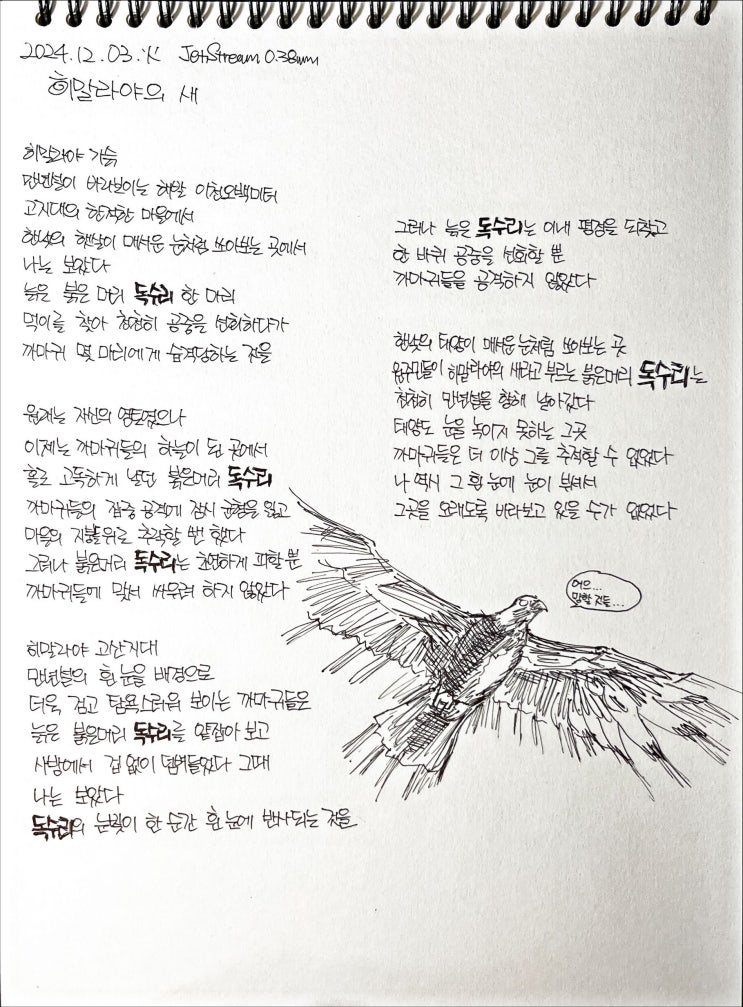 2024.12.03.火 JetStream 0.38mm
히말라야의 새
히말라야 기슭
만년설이 바라보이는 해발 이천오백미터
고지대의 한적한 마을에서
한낮의 햇살이 매서운 눈처럼 쏘아보는 곳에서
나는 보았다
늙은 붉은 머리 독수리 한 마리
먹이를 찾아 천천히 공중을 선회하다가
까마귀 몇 마리에게 습격당하는 것을
원래는 자신의 영토였으나
이제는 까마귀들의 하늘이 된 곳에서
홀로 고독하게 날던 붉은머리 독수리
까마귀들의 집중 공격에 잠시 균형을 잃고
마을의 지붕위로 추락할 뻔 했다
그러나 붉은머리 독수리는 초연하게 피할 뿐
까마귀들에 맞서 싸우려 하지 않았다
히말라야 고산지대
만년설의 흰 눈을 배경으로
더욱 검고 탐욕스러워 보이는 까마귀들은
늙은 붉은머리 독수리를 얕잡아 보고
사방에서 겁 없이 덤벼들었다 그때
나는 보았다
독수리의 눈빛이 한 순간 흰 눈에 반사되는 것을
그러나 늙은 독수리는 이내 평정을 되찾고
한 바퀴 공중을 선회할 뿐
까마귀들을 공격하지 않았다
한낮의 태양이 매서운 눈처럼 쏘아보는 곳
원주민들이 히말라야의 새라고 부르는 붉은머리 독수리는
천천히 만년설을 향해 날아갔다
태양도 눈을 녹이지 못하는 그곳
까마귀들은 더 이상 그를 추적할 수 없었다
나 역시 그 흰 눈에 눈이 부셔서
그곳을 오래도록 바라보고 있을 수가 없었다
어으...
망할 것들...